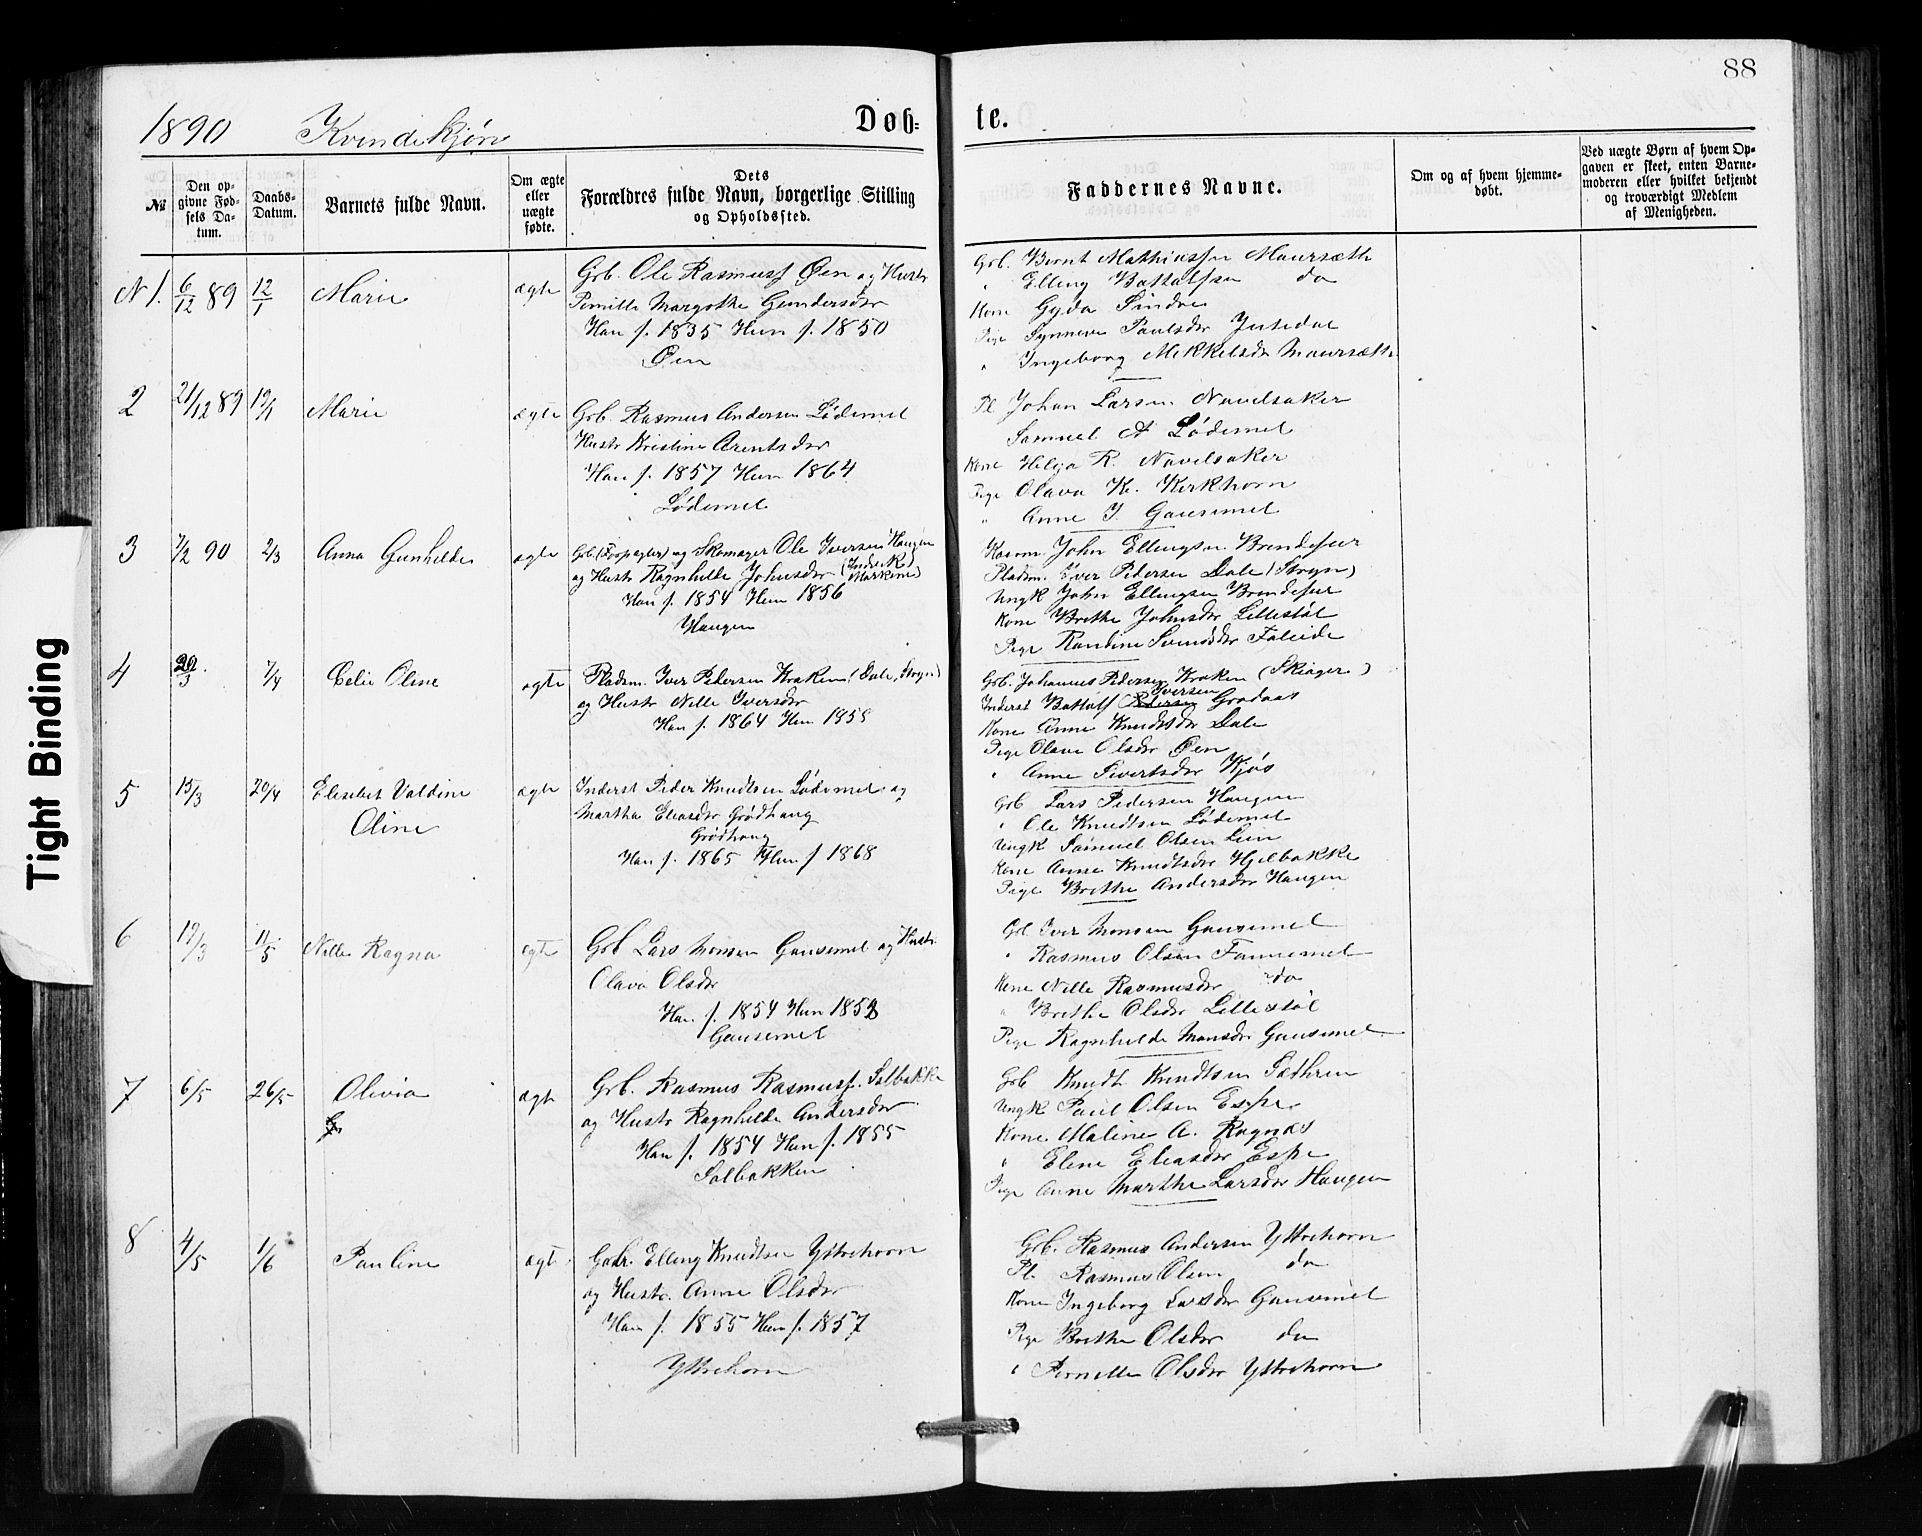 88
1890 Kvindekjøn Døb- te.
№
Den opgivne Fødsels Datum.
Daabs-Datum.
Barnets fulde Navn.
Om ægte eller uægte fødte.
Dets Forældres fulde Navn, borgerlige Stilling og Opholdssted.
Faddernes Navne.
Om og af hvem hjemmedøbt.
Ved uægte Børn af hvem Opgaven er skeet, enten Barnemoderen eller hvilket bekjendt og troværdigt Medlem af Menigheden.
N 1. 6/12 89 12/1 Marie ægte
Grb. Ole Rasmuss Øen og Hustr
Pernille Margothe Gundersdr
Han f. 1835 Hun f. 1850
Øen
Grb. Bernt Mathiassen Maursæth
" Elling Battalfsen do
Kone Gyda Sindre
Pige Synneve Paulsdr Jusedal
" Ingeborg Mikkelsdr Maursæth
2 21/12 89 19/1 Marie ægte
Grb. Rasmus Andersen Lødemel
Hustr Kristine Arentsdr
Han f. 1857 Hun 1864
Lødemel
Pl Johan Larsen Navelsaker
Samuel A Lødemel
Kone Helga R. Navelsaker
Pige Olava K. Kirkhorn
" Anne J. Gausemel
3 7/2 90 2/3 Anna Gunhilde ægte
Grb. (Forpagter) og Skomager Ole Iversen Haugen
og Hustr Ragnhilde Johnsdr (Indvik Markene)
Han f. 1854 Hun 1856
Haugen
Kaarm. John Ellingsen Brendefur
Pladsm. Iver Pedersen Dale (Stryn)
Ungk John Ellingsen Brendefur
Kone Brithe Johnsdr Lillestøl
Pige Randine Svendsdr Faleide
4 20/3 7/4 Celie Oline ægte
Pladsm. Iver Pedersen Kraken (Dale, Stryn)
og Hustr Nille Iversdr
Han f. 1864 Hun 1858
Grb. Johannes Pedersen Kraken (Skiager)
Inderst Battolf Pedersen Iversen Grodaas
Kone Anne Knudtsdr Dale
Pige Olave Olsdr Øen
" Anne Sivertsdr Kjøs
5 15/3 20/4 Elisebet Valdine Oline ægte
Inderst Peder Knudtsen Lødemel og
Martha Eliasdr Grødhaug
Grødhaug
Han f. 1865 Hun f 1868
Grb Lars Pedersen Haugen
" Ole Knudtsen Lødemel
Ungk Samuel Olsen Lun
Kone Anne Knudtsdr Hjelbakke
Pige Brithe Andersdr Haugen
6 19/3 11/5 Nille Ragna ægte
Grb Lars Monsen Gausemel og Hustr.
Olava Olsdr
Han f. 1854 Hun 1852
Gausemel
Grb Iver Monsen Gausemel
" Rasmus Olsen Fannemel
Kone Nille Rasmusdr do
" Brithe Olsdr Lillestøl
Pige Ragnhilde Monsdr Gausemel
7 6/5 26/5 Olivia ægte
Grb. Rasmus Rasmuss. Solbakke
og Hustr Ragnhilde Andersdr
Han f. 1854 Hun f. 1855
Solbakken
Grb Knudt Knudtsen Sæthren
Ungk Paul Olsen Espe
Kone Maline A. Ragnæs
" Elene Eliasdr Espe
Pige Anne Marthe Larsdr Haugen
8 4/5 1/6 Pauline ægte
Gadr. Elling Knudtsen Yttrehorn
og Hustr. Anne Olsdr
Han f. 1855 Hun f. 1857
Yttrehorn
Grb. Rasmus Andersen Yttrehorn
Pl. Rasmus Olsen do
Kone Ingeborg Larsdr Gausemel
Pige Brithe Olsdr do
" Pernille Olsdr Yttrehorn
Tight Binding